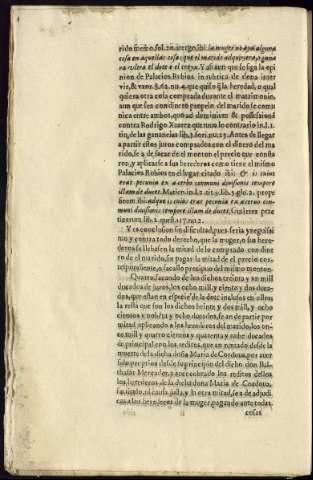 rido mesmo fol. in verso, ibi: la muger no aya alguna
cosa en aquellas cosas que el marido adquiriere, y gana
ra viera el dote o el cuya. Y assi aunque se siga la opi
nion de Palacios Rubios in rubrica de dona inter
vir, & vxor. §.62. nu.4. que quiso q̃ la heredad, o qual
quiera otra cosa comprada durante el matrimonio,
aunque sea con dinero propio del marido se comu
nica entre ambos, quo ad dominium & possessionẽ
contra Rodrigo Xuarez que tuuo lo contrario in l.1.
tit. de las ganancias lib.3. fori nu.23. Antes de llegar
a partir estos juros comprados con el dinero del ma
rido, se a de sacar de el monton el precio que consta
re, y aplicarse a sus herederos como tiene el mismo
Palacios Rubios en el lugar citado ibi: & is cuius
erat pecunia ex aceruo communi diuisionis tempore
illam deducet. Matienzo in l.2. tit.9. lib.5. glo.2.
nem ibi: adque is cuius erat pecunia ex aceruo com
muni diuisionis tempore illam deducet, Gutierrez prac
ticarum, lib.2. quęst.117. nu.2.
Y es conclusion sin dificultad, pues seria yniquissi
mo y contra todo derecho, que la muger, o sus here
deros se lleuassen la mitad de lo comprado con dine
ro de el marido, sin pagar la mitad de el precio co
respondiente, o sacallo proequo del mismo monton.
Quarto, sacando de los dichos treinta y un mill
ducados de juros, los ocho mill y ciento y dos duca
dos, que estan en especie de la dote inclusos en ellos
la resta que son los dichos veinte y dos mill, y ocho
cientos y nouenta y ocho ducados, se an de partir por
mitad aplicando a los herederos del marido, los on
ce mill y quatro cientos y quarenta y ocho ducados
de principal con los reditos, que an rentado desde la
muerte de la dicha doña Maria de Cordoua, por auer
sido suyos propios desde su principio del dicho don Bal
thasar Mercader, y auer cobrado los reditos dellos
los herederos de la dicha doña Maria de Cordoua,
sin titulo, ni causa justa, y la otra mitad, se a de adjudi
car a los herederos de la muger, pagando ante todas
cosas